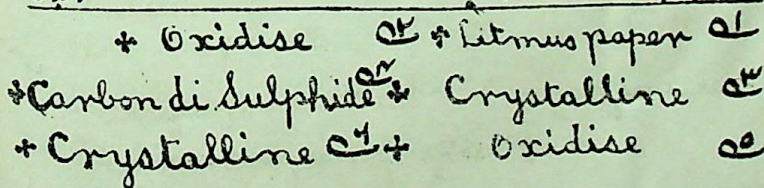 * Oxidise ۲ * Litmus paper ۱
* Carbon di Sulphide ۴ * Crystalline ۳
* Crystalline ۶ * Oxidise ۵